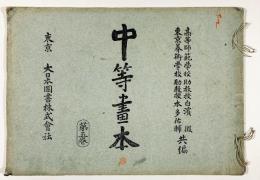 高等師範學校助教授白濱 徴
東京美術學校助教授本多佑輔 共編
中等畫本
第五卷
東京 大日本圖書株式會社